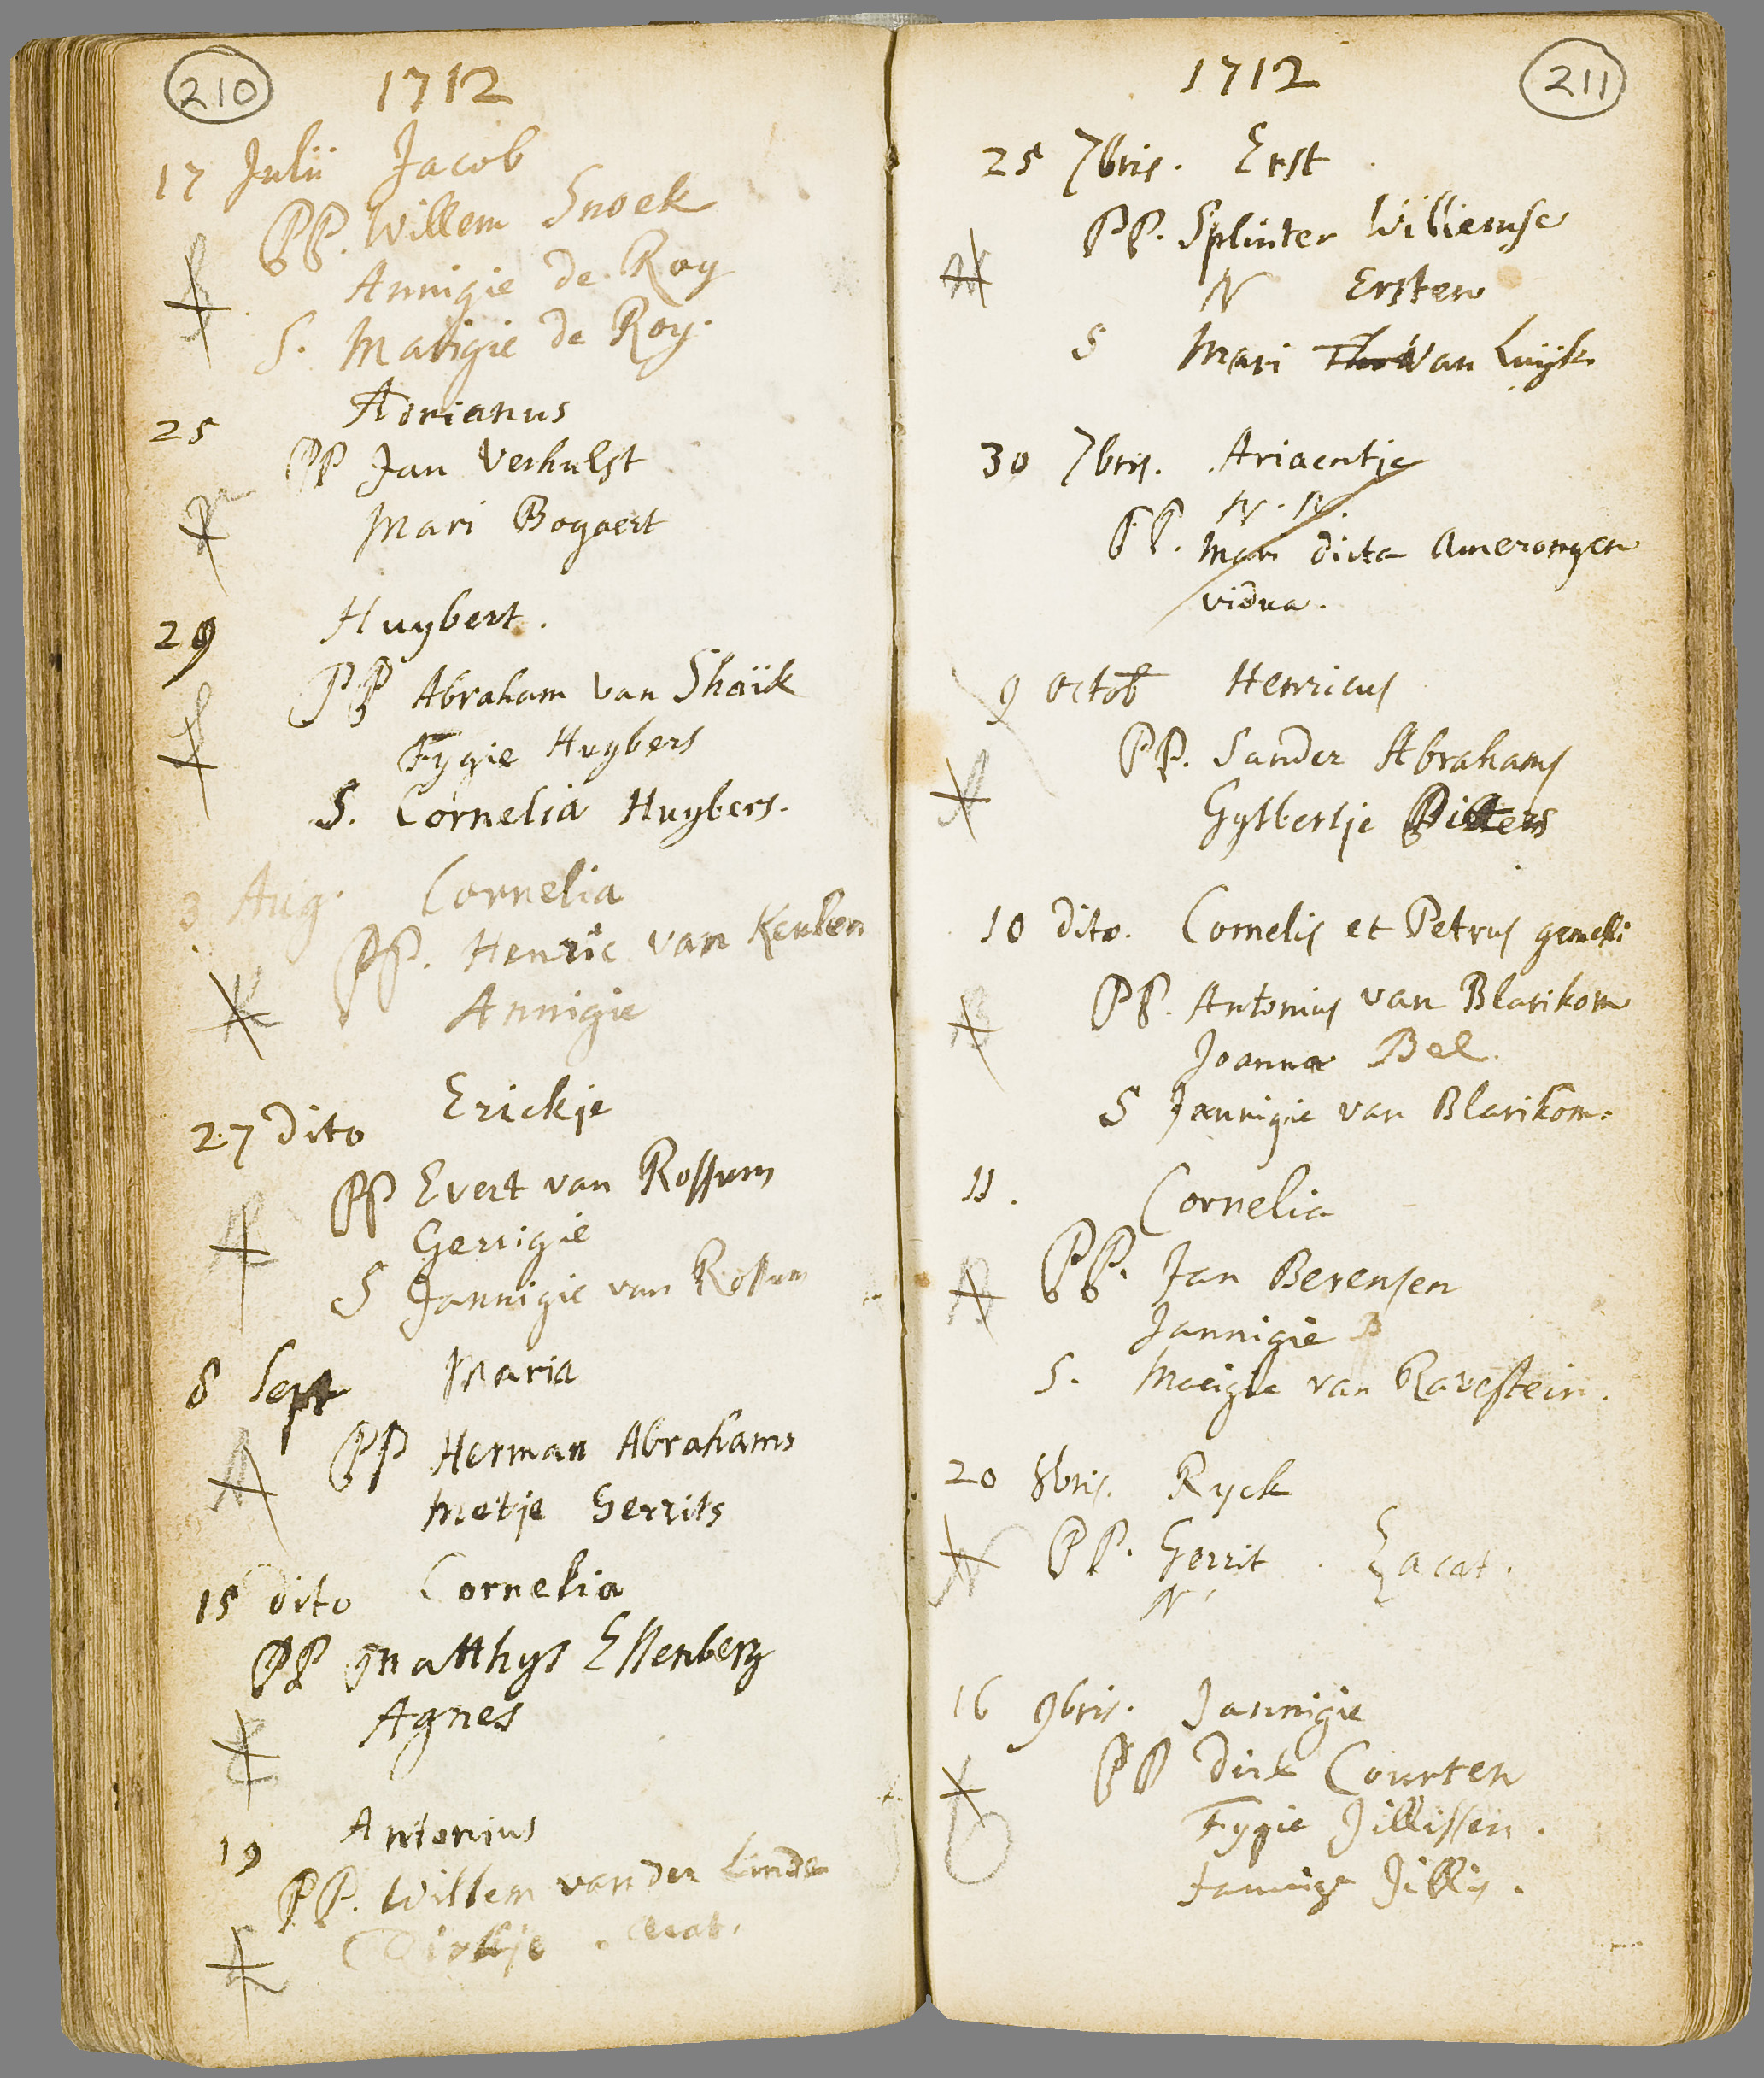 210
1712
17 Julii Jacob
PP. Willem Snoek
Annigie de Roy
S. Marigie de Roy.
25 Adrianus
PP Jan Verhulst
Mari Bogaert
29 Huybert.
PP Abraham van Shaik
Fygie Huybers
S. Cornelia Huybers.
3 Aug. Cornelia
PP. Henric van Keulen
Annigie
27 Dito Erickje
PP Evert van Rossum
Gerrigie
S Jannigie van Rossum
8 Sept Maria
PP Herman Abrahams
Metje Gerrits
15 dito Cornelia
PP Matthys Essenberg
Agnes
19 Antonius
PP. Willem van der Linde
Dirkje
1712
211
25 7bris. Erst
PP. Splinter Willemse
N Ersten
S Mari Van Luijk
30 7bris. Ariaentje
N. N.
PP. Mari dicta Amerongen
vidua.
9 Octob Henricus
PP. Sander Abrahams
Gysbertje
10 Dito. Cornelis et Petrus gemelli
PP. Antonius van Blarikom
Joanna Bel.
S Jannigie van Blarikom.
11. Cornelia
PP. Jan Berensen
Jannigie
S. Marigie van Ravestein.
20 8bris. Ryck
PP. Gerrit .
N
16 9bris. Jannigie
PP Dirk Courten
Fygie Jillissen.
Jannige Jillis.